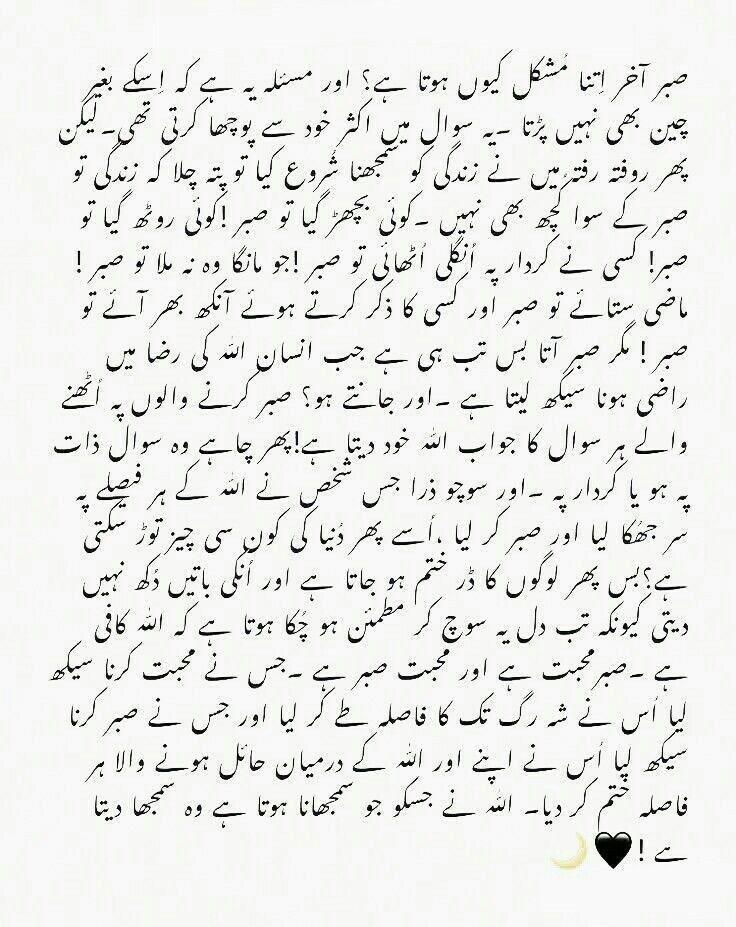 صبر آخر اِتنا مُشکل کیوں ہوتا ہے؟ اور مسئلہ یہ ہے کہ اِسکے بغیر
چین بھی نہیں پڑتا ۔یہ سوال میں اکثر خود سے پوچھا کرتی تھی۔لیکن
پھر روفتہ رفتہ میں نے زندگی کو سمجھنا شُروع کیا تو پتہ چلا کہ زندگی تو
صبر کے سوا کچھ بھی نہیں ۔کوئی بچھڑ گیا تو صبر !کوئی روٹھ گیا تو
صبر! کسی نے کردار پہ اُنگلی اُٹھائی تو صبر !جو مانگا وہ نہ ملا تو صبر !
ماضی ستائے تو صبر اور کسی کا ذکر کرتے ہوئے آنکھ بھر آئے تو
صبر ! مگر صبر آتا بس تب ہی ہے جب انسان اللہ کی رضا میں
راضی ہونا سیکھ لیتا ہے ۔اور جانتے ہو؟ صبر کرنے والوں پہ اُٹھنے
والے ہر سوال کا جواب اللہ خود دیتا ہے!پھر چاہے وہ سوال ذات
پہ ہو یا کردار پہ ۔اور سوچو ذرا جس شخص نے اللہ کے ہر فیصلے پہ
سر جھُکا لیا اور صبر کر لیا ،اُسے پھر دُنیا کی کون سی چیز توڑ سکتی
ہے؟بس پھر لوگوں کا ڈر ختم ہو جاتا ہے اور اُنکی باتیں دُکھ نہیں
دیتی کیونکہ تب دل یہ سوچ کر مطمئن ہو چُکا ہوتا ہے کہ اللہ کافی
ہے ۔صبر محبت ہے اور محبت صبر ہے ۔جس نے محبت کرنا سیکھ
لیا اُس نے شہ رگ تک کا فاصلہ طے کر لیا اور جس نے صبر کرنا
سیکھ لیا اُس نے اپنے اور اللہ کے درمیان حائل ہونے والا ہر
فاصلہ ختم کر دیا۔ اللہ نے جسکو جو سمجھانا ہوتا ہے وہ سمجھا دیتا
ہے !🖤🌙